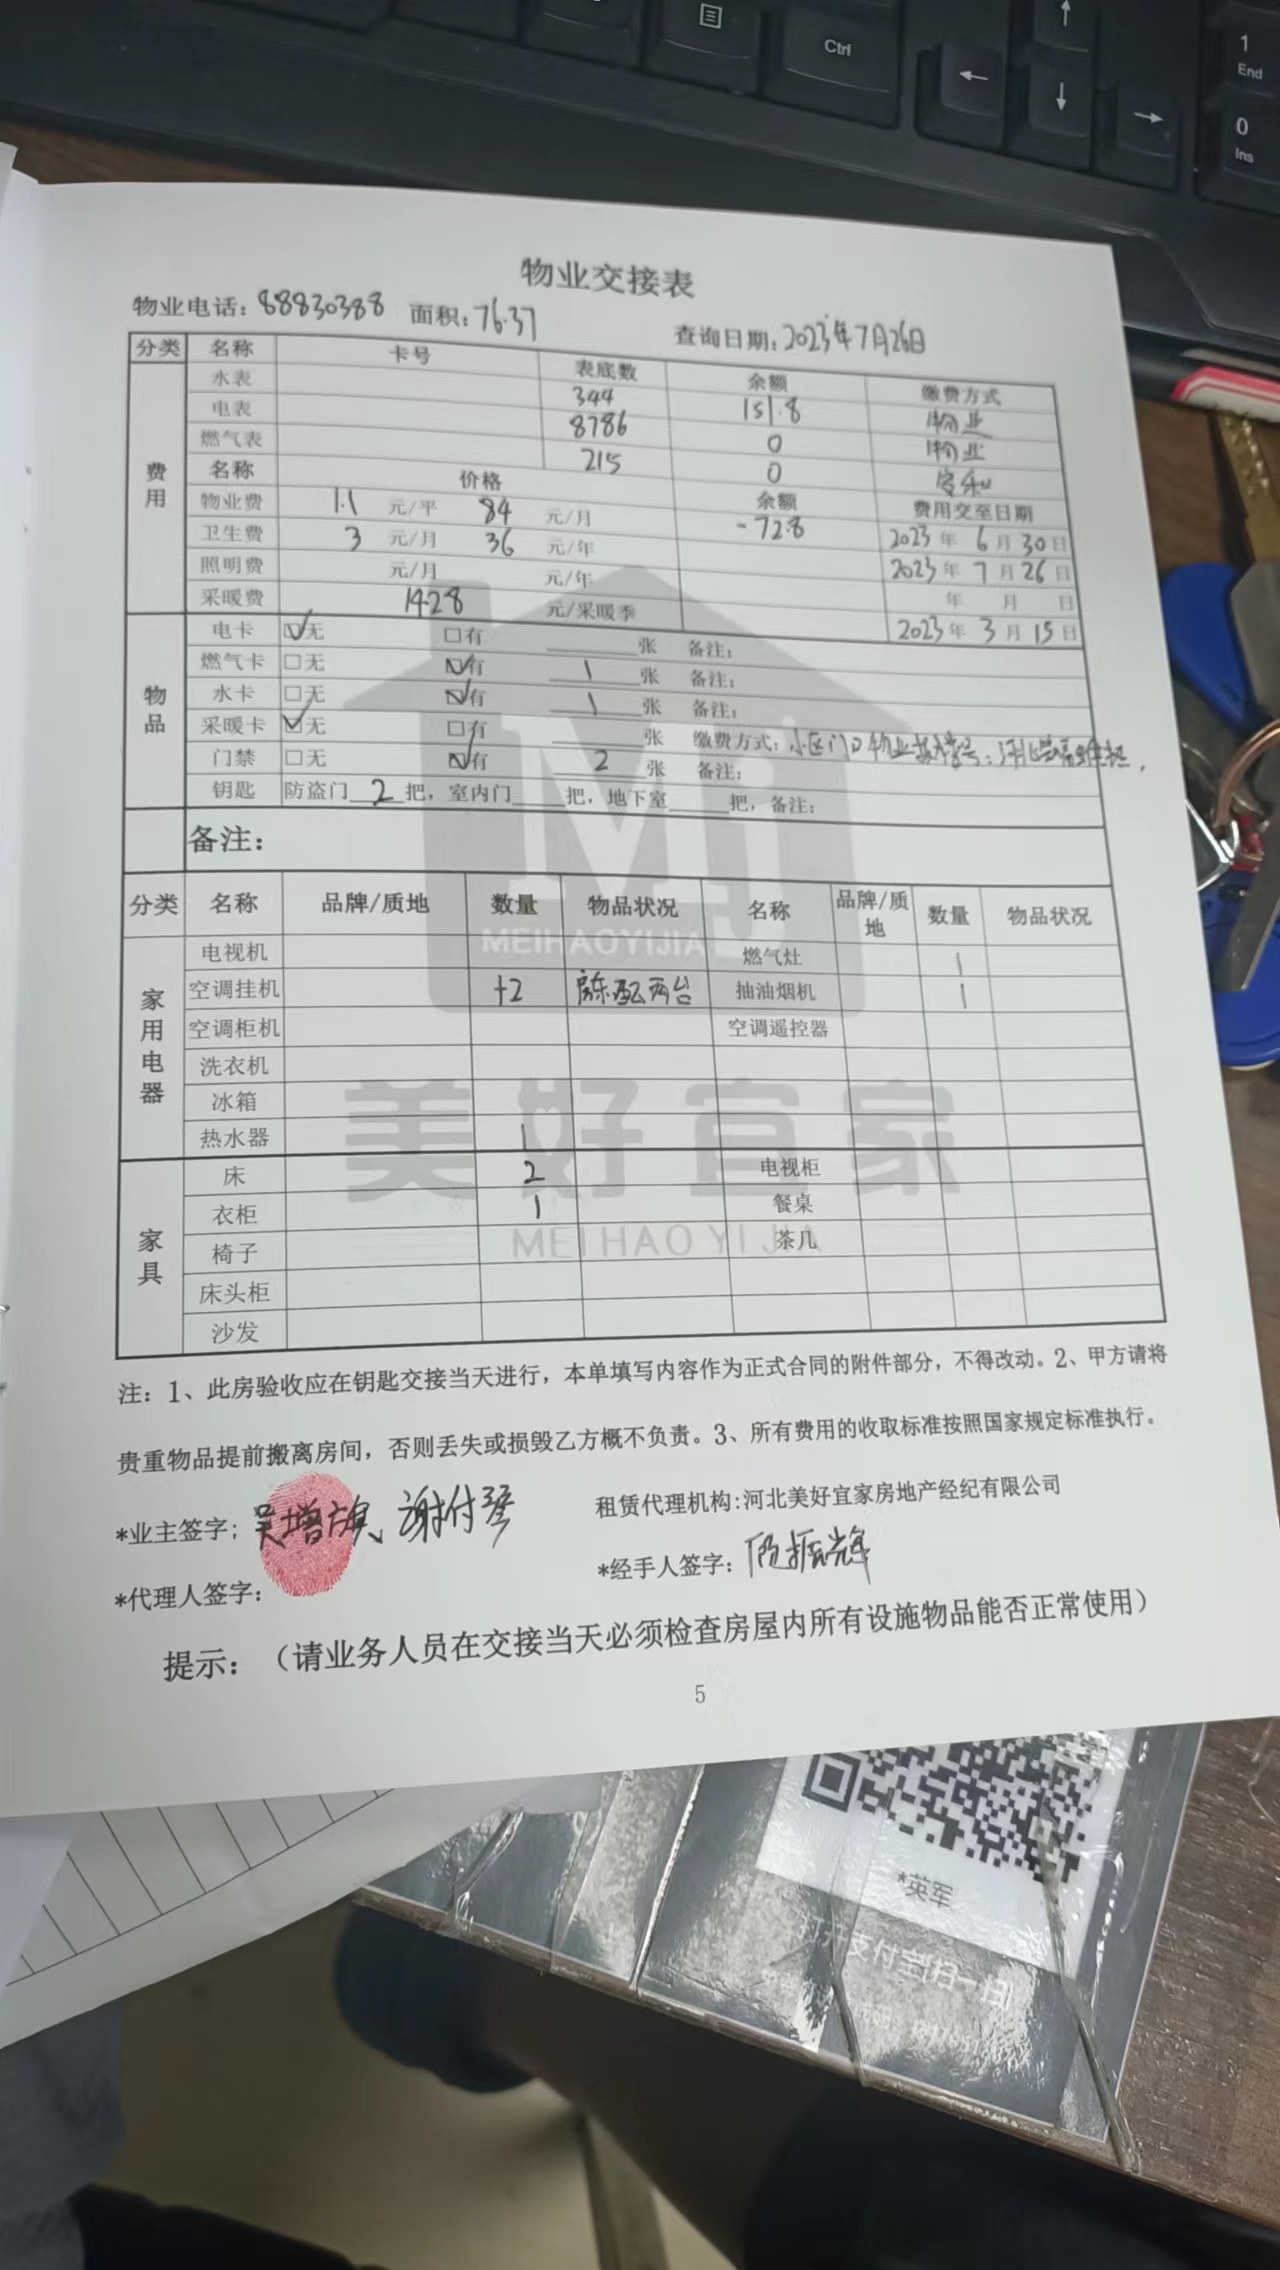 Ctrl
1
End
0
Ins
物业交接表
物业电话：88830388 面积：76.37 查询日期：2023年7月26日
分类 名称 卡号 表底数 余额 缴费方式
费用
水表 344 151.8 物业
电表 8786 0 物业
燃气表 215 0
名称 价格 余额 费用交至日期
物业费 1.1 元/平 84 元/月 -72.8 2023年6月30日
卫生费 3 元/月 36 元/年 2023年7月26日
照明费 元/月 元/年 年 月 日
采暖费 1428 元/采暖季 2023年3月15日
物品
电卡 ☑无 □有 张 备注：
燃气卡 □无 ☑有 1 张 备注：
水卡 □无 ☑有 1 张 备注：
采暖卡 ☑无 □有 张 缴费方式：小区门口物业
门禁 □无 ☑有 2 张 备注：
钥匙 防盗门 2 把，室内门 把，地下室 把，备注：
备注：
分类 名称 品牌/质地 数量 物品状况 名称 品牌/质地 数量 物品状况
家用电器
电视机 燃气灶 1
空调挂机 +2 房东配两台 抽油烟机 1
空调柜机 空调遥控器
洗衣机
冰箱
热水器 1
家具
床 2 电视柜
衣柜 1 餐桌
椅子 茶几
床头柜
沙发
Mj
MEIHAOYIJIA
美好宜家
MEI HAO YI JIA
注：1、此房验收应在钥匙交接当天进行，本单填写内容作为正式合同的附件部分，不得改动。2、甲方请将
贵重物品提前搬离房间，否则丢失或损毁乙方概不负责。3、所有费用的收取标准按照国家规定标准执行。
*业主签字；吴增旗、谢付琴 租赁代理机构:河北美好宜家房地产经纪有限公司
*代理人签字： *经手人签字：
提示：（请业务人员在交接当天必须检查房屋内所有设施物品能否正常使用）
5
*英军
打开支付宝[扫一扫]